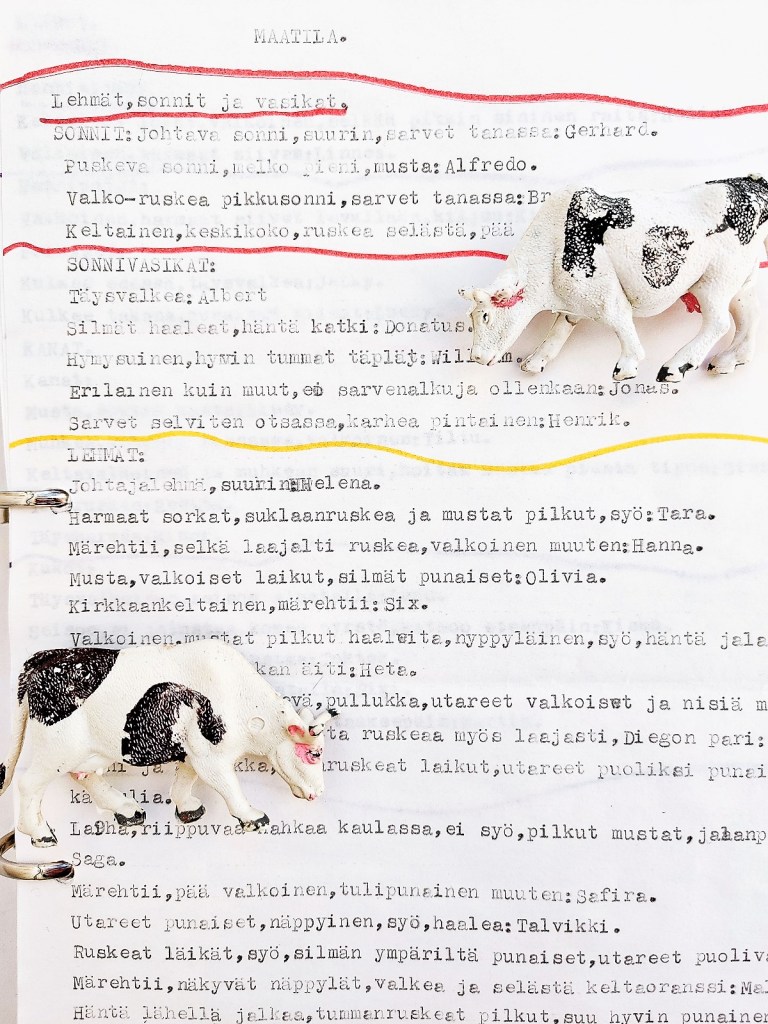 MAATILA.
Lehmät,sonnit ja vasikat.
SONNIT:Johtava sonni,suurin,sarvet tanassa:Gerhard.
Puskeva sonni,melko pieni,musta:Alfredo.
Valko-ruskea pikkusonni,sarvet tanassa:Br
Keltainen,keskikoko,ruskea selästä,pää
SONNIVASIKAT:
Täysvalkea:Albert
Silmät haaleat,häntä katki:Donatus.
Hymysuinen,hyvin tummat täplät:William.
Erilainen kuin muut,ei sarvenalkuja ollenkaan:Jonas.
Sarvet selviten otsassa,karhea pintainen:Henrik.
LEHMÄT:
Johtajalehmä,suurin:Helena.
Harmaat sorkat,suklaanruskea ja mustat pilkut,syö:Tara.
Märehtii,selkä laajalti ruskea,valkoinen muuten:Hanna.
Musta,valkoiset laikut,silmät punaiset:Olivia.
Kirkkaankeltainen,märehtii:Six.
Valkoinen,mustat pilkut haaleita,nyppyläinen,syö,häntä jala
kan äiti:Heta.
evä,pullukka,utareet valkoiset ja nisiä m
ta ruskeaa myös laajasti,Diegon pari:
ja kka, ruskeat laikut,utareet puoliksi punai
Laiha,riippuvaa nahkaa kaulassa,ei syö,pilkut mustat,jalanp
Saga.
Märehtii,pää valkoinen,tulipunainen muuten:Safira.
Utareet punaiset,näppyinen,syö,haalea:Talvikki.
Ruskeat läikät,syö,silmän ympäriltä punaiset,utareet puoliva
Märehtii,näkyvät näppylät,valkea ja selästä keltaoranssi:Mal
Häntä lähellä jalkaa,tummanruskeat pilkut,suu hyvin punainen